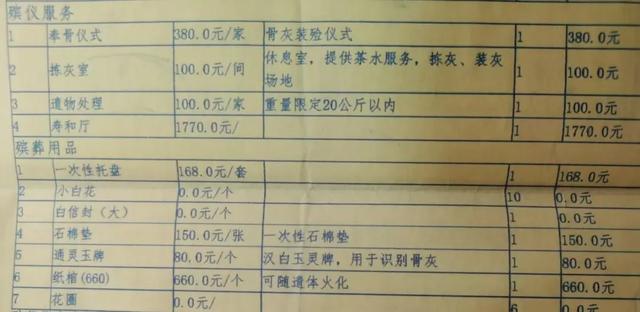 殡仪服务
1 奉骨仪式 380.0元/家 骨灰装殓仪式 1 380.0元
2 拣灰室 100.0元/间 休息室,提供茶水服务,拣灰、装灰场地 1 100.0元
3 遗物处理 100.0元/家 重量限定20公斤以内 1 100.0元
4 寿和厅 1770.0元/ 1 1770.0元
殡葬用品
1 一次性托盘 168.0元/套 1 168.0元
2 小白花 0.0元/个 10 0.0元
3 白信封(大) 0.0元/个 1 0.0元
4 石棉垫 150.0元/张 一次性石棉垫 1 150.0元
5 通灵玉牌 80.0元/个 汉白玉灵牌,用于识别骨灰 1 80.0元
6 纸棺(660) 660.0元/个 可随遗体火化 1 660.0元
7 花圈 0.0元/ 6 0.0元